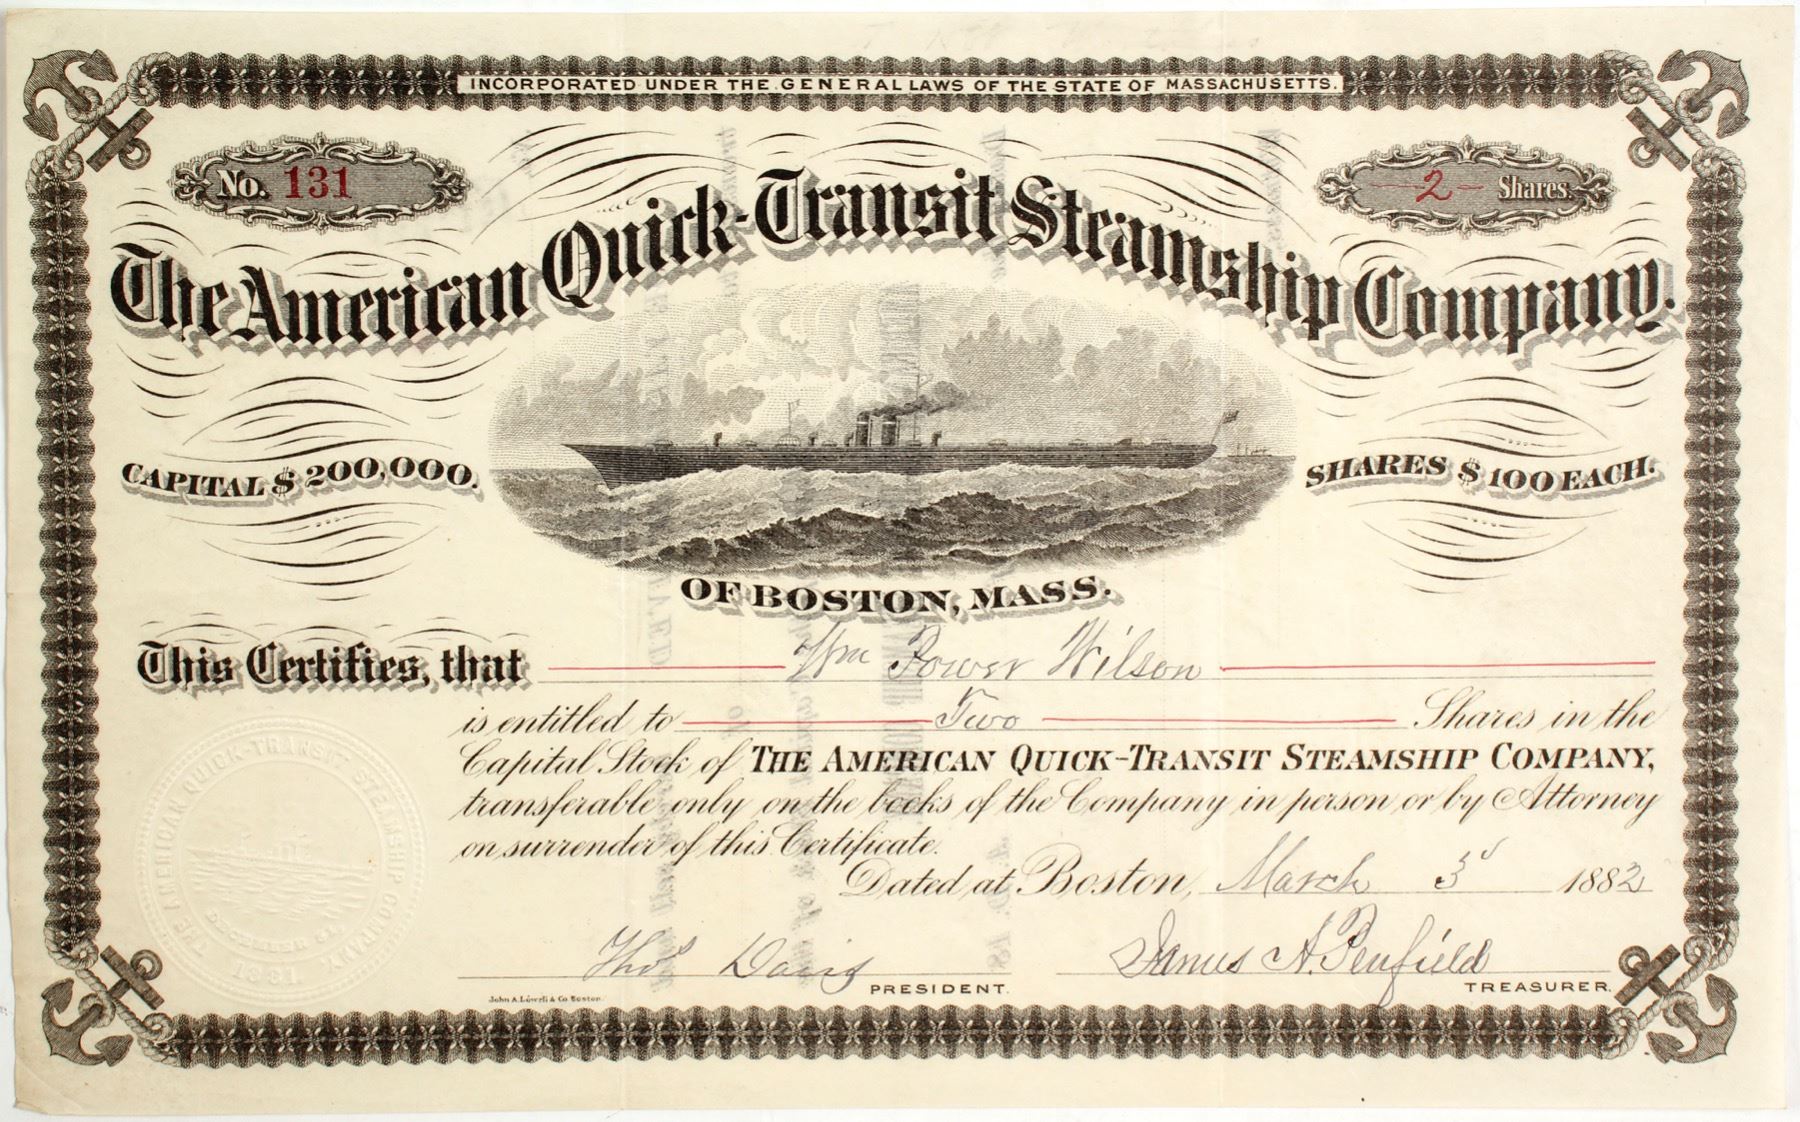 INCORPORATED UNDER THE GENERAL LAWS OF THE STATE OF MASSACHUSETTS.
No. 131
2 Shares.
The American Quick-Transit Steamship Company.
CAPITAL $200,000.
SHARES $100 EACH.
OF BOSTON, MASS.
This Certifies, that Wm Power Wilson
is entitled to Two Shares in the
Capital Stock of THE AMERICAN QUICK-TRANSIT STEAMSHIP COMPANY,
transferable only on the books of the Company in person or by Attorney
on surrender of this Certificate.
Dated at Boston, March 3d 1882
THE AMERICAN QUICK-TRANSIT STEAMSHIP COMPANY.
DECEMBER 31,
1881
Thos Davis PRESIDENT.
James A. Penfield TREASURER.
John A. Lowell & Co. Boston.